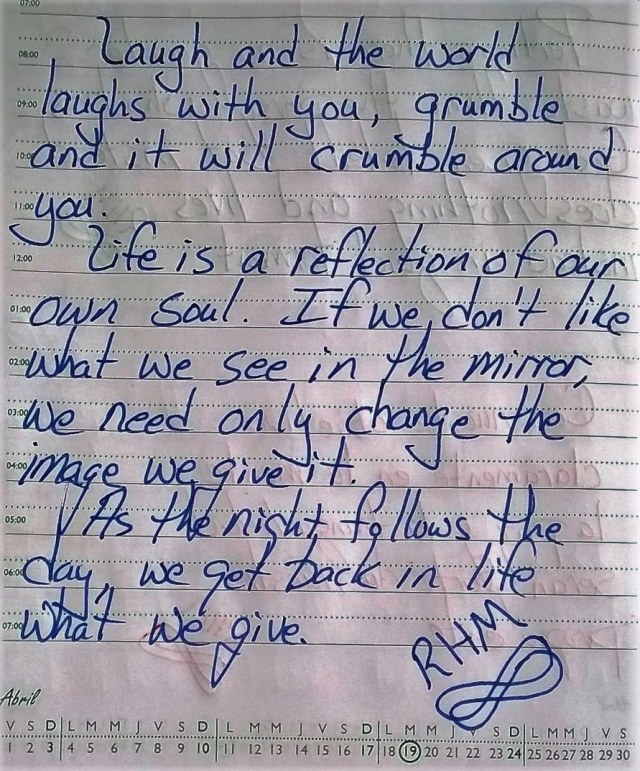 07:00
08:00 Laugh and the world
09:00 laughs with you, grumble
10:00 and it will crumble around
11:00 you.
12:00 Life is a reflection of our
01:00 own soul. If we don't like
02:00 what we see in the mirror,
03:00 we need only change the
04:00 image we give it.
05:00 As the night follows the
06:00 day, we get back in life
07:00 what we give.
RHM
Abril
V S D L M M J V S D L M M J V S D L M M J V S D L M M J V S
1 2 3 4 5 6 7 8 9 10 11 12 13 14 15 16 17 18 19 20 21 22 23 24 25 26 27 28 29 30